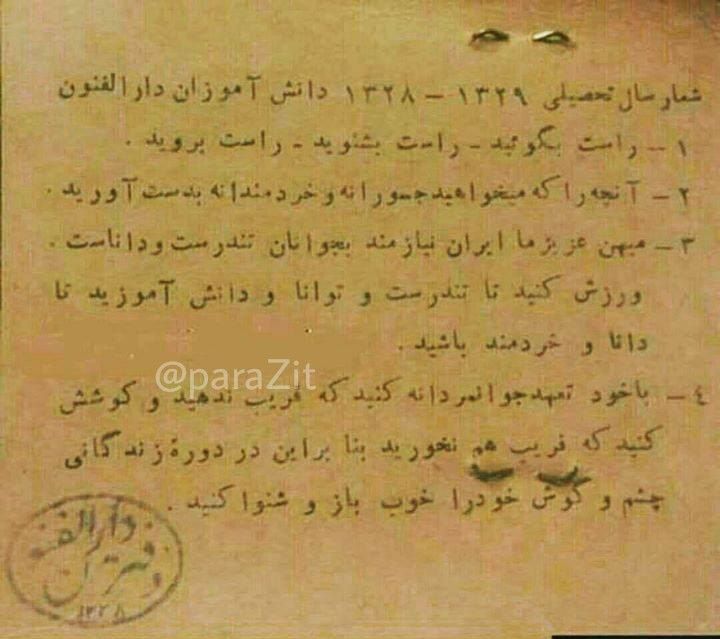 شعار سال تحصیلی ۱۳۲۹ - ۱۳۲۸ دانش آموزان دارالفنون
۱ - راست بگوئید - راست بشنوید - راست بروید .
۲ - آنچه را که میخواهید جسورانه و خردمندانه بدست آورید .
۳ - میهن عزیز ما ایران نیازمند بجوانان تندرست و داناست .
ورزش کنید تا تندرست و توانا و دانش آموزید تا
دانا و خردمند باشید .
@paraZit
٤ - باخود تعهد جوانمردانه کنید که فریب ندهید و کوشش
کنید که فریب هم نخورید بنا براین در دورهٔ زندگانی
چشم و گوش خودرا خوب باز و شنوا کنید .
دفتر دارالفنون
۱۳۲۸